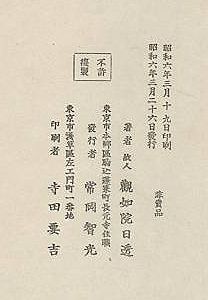 昭和六年三月十九日印刷
昭和六年三月二十六日発行
非賣品
不許
複製
著者 故人 觀如院日透
東京市本郷區駒込蓬莱町長元寺住職
発行者 常岡智光
東京市浅草區左工門町一番地
印刷者 寺田要吉